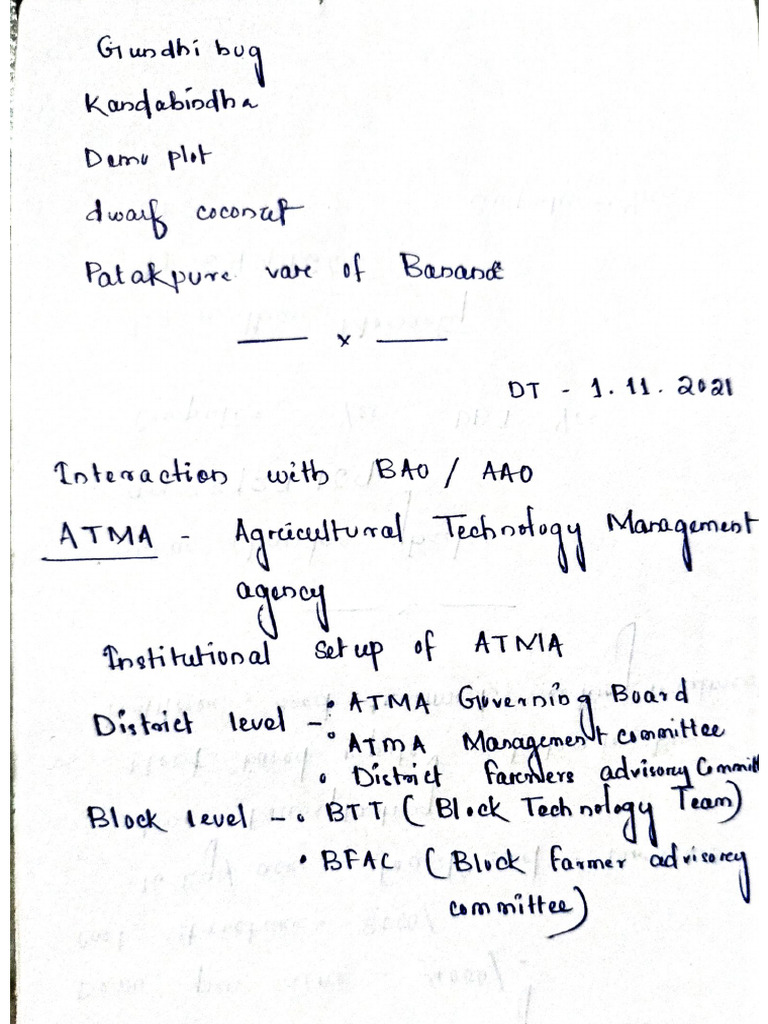 Gundhi bug
Kandabindha
Demo plot
dwarf coconut
Patakpura vare of Banana
—— x ——
DT - 1.11.2021
Interaction with BAO / AAO
ATMA - Agricultural Technology Management
agency
Institutional set up of ATMA
District level - • ATMA Governing Board
• ATMA Management committee
• District farmers advisory Committ
Block level - • BTT (Block Technology Team)
• BFAC (Block farmer advisory
committee)